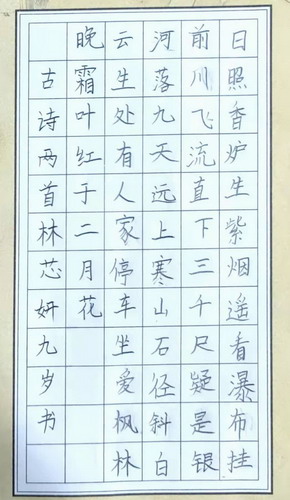 日照香炉生紫烟遥看瀑布挂
前川飞流直下三千尺疑是银
河落九天远上寒山石径斜白
云生处有人家停车坐爱枫林
晚霜叶红于二月花
古诗两首林芯妍九岁书